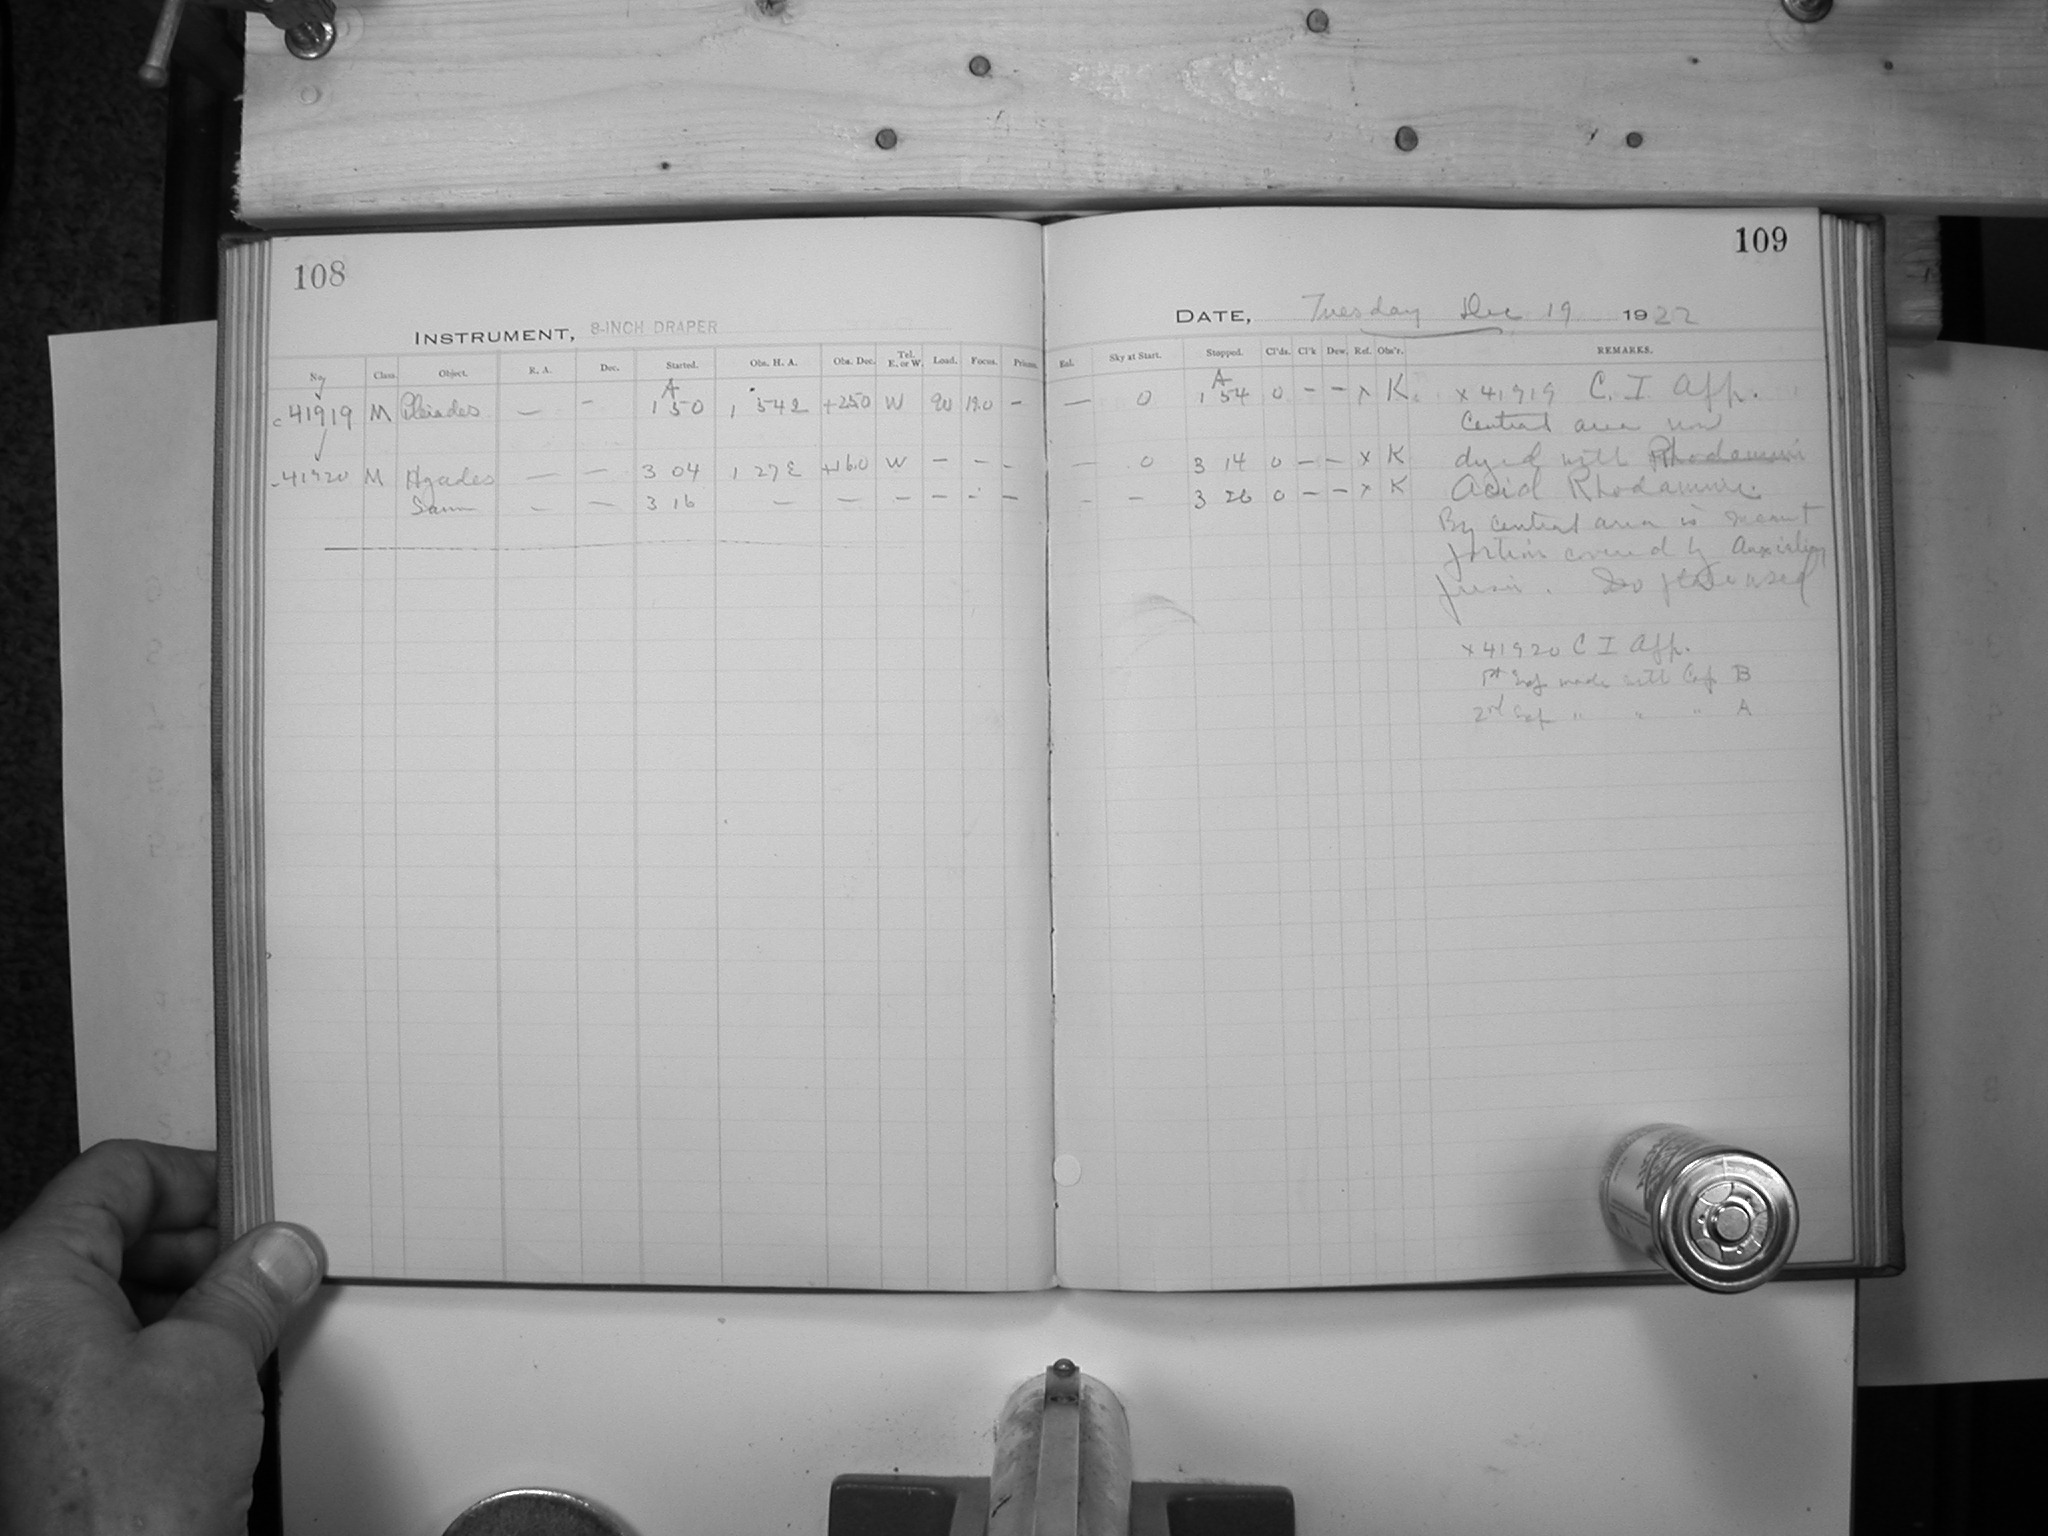 108
109
INSTRUMENT, 8-INCH DRAPER
DATE, Tuesday Dec 19 1922
No. Class. Object. R. A. Dec. Started. Obs. H. A. Obs. Dec. Tel. E. or W. Load. Focus. Prisms. Eal. Sky at Start. Stopped. Cl'ds. Cl'k Dew. Ref. Obs'r. REMARKS.
c 41919 M Pleiades — – A 1 50 1 54 2 +25.0 W 90 19.0 – — 0 A 1 54 0 – – x K. x 41919 C. I App.
Central area now
41920 M Hyades — — 3 04 1 27 +16.0 W – – – — 0 3 14 0 – – x K dyed with Rhodamine
Same – — 3 16 — — – – – – – – 3 26 0 – – x K Acid Rhodamine.
By central area is meant
portion covered by Auxiliary
prism. So plate used
x 41920 C I App.
1st Exp made with Cap B
2nd Exp " " " A